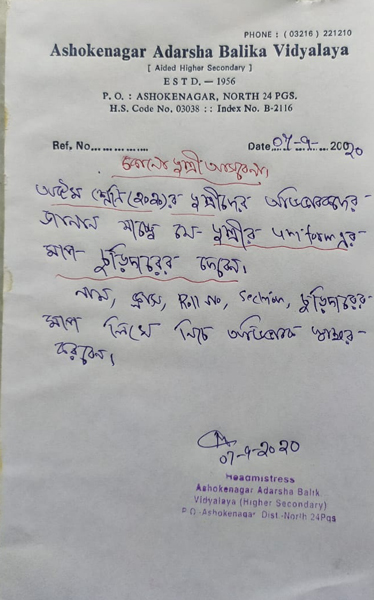 PHONE : (03216) 221210
Ashokenagar Adarsha Balika Vidyalaya
[ Aided Higher Secondary ]
E S T D. — 1956
P. O. : ASHOKENAGAR, NORTH 24 PGS.
H.S. Code No. 03038 : : Index No. B-2116
Ref. No.................. Date 07-9-20020
কোনো ছাত্রী আসবেনা।
অষ্টম শ্রেণির ছাত্রীদের অভিভাবকদের
জানান যাচ্ছে যে ছাত্রীর uniform এর
মাপ চুড়িদারের দেবেন।
নাম, ক্লাস, Roll No, Section, চুড়িদারের
মাপ লিখে নিচে অভিভাবক স্বাক্ষর
করবেন।
07-9-2020
Headmistress
Ashokenagar Adarsha Balik
Vidyalaya (Higher Secondary)
P.O.-Ashokenagar Dist.-North 24Pgs